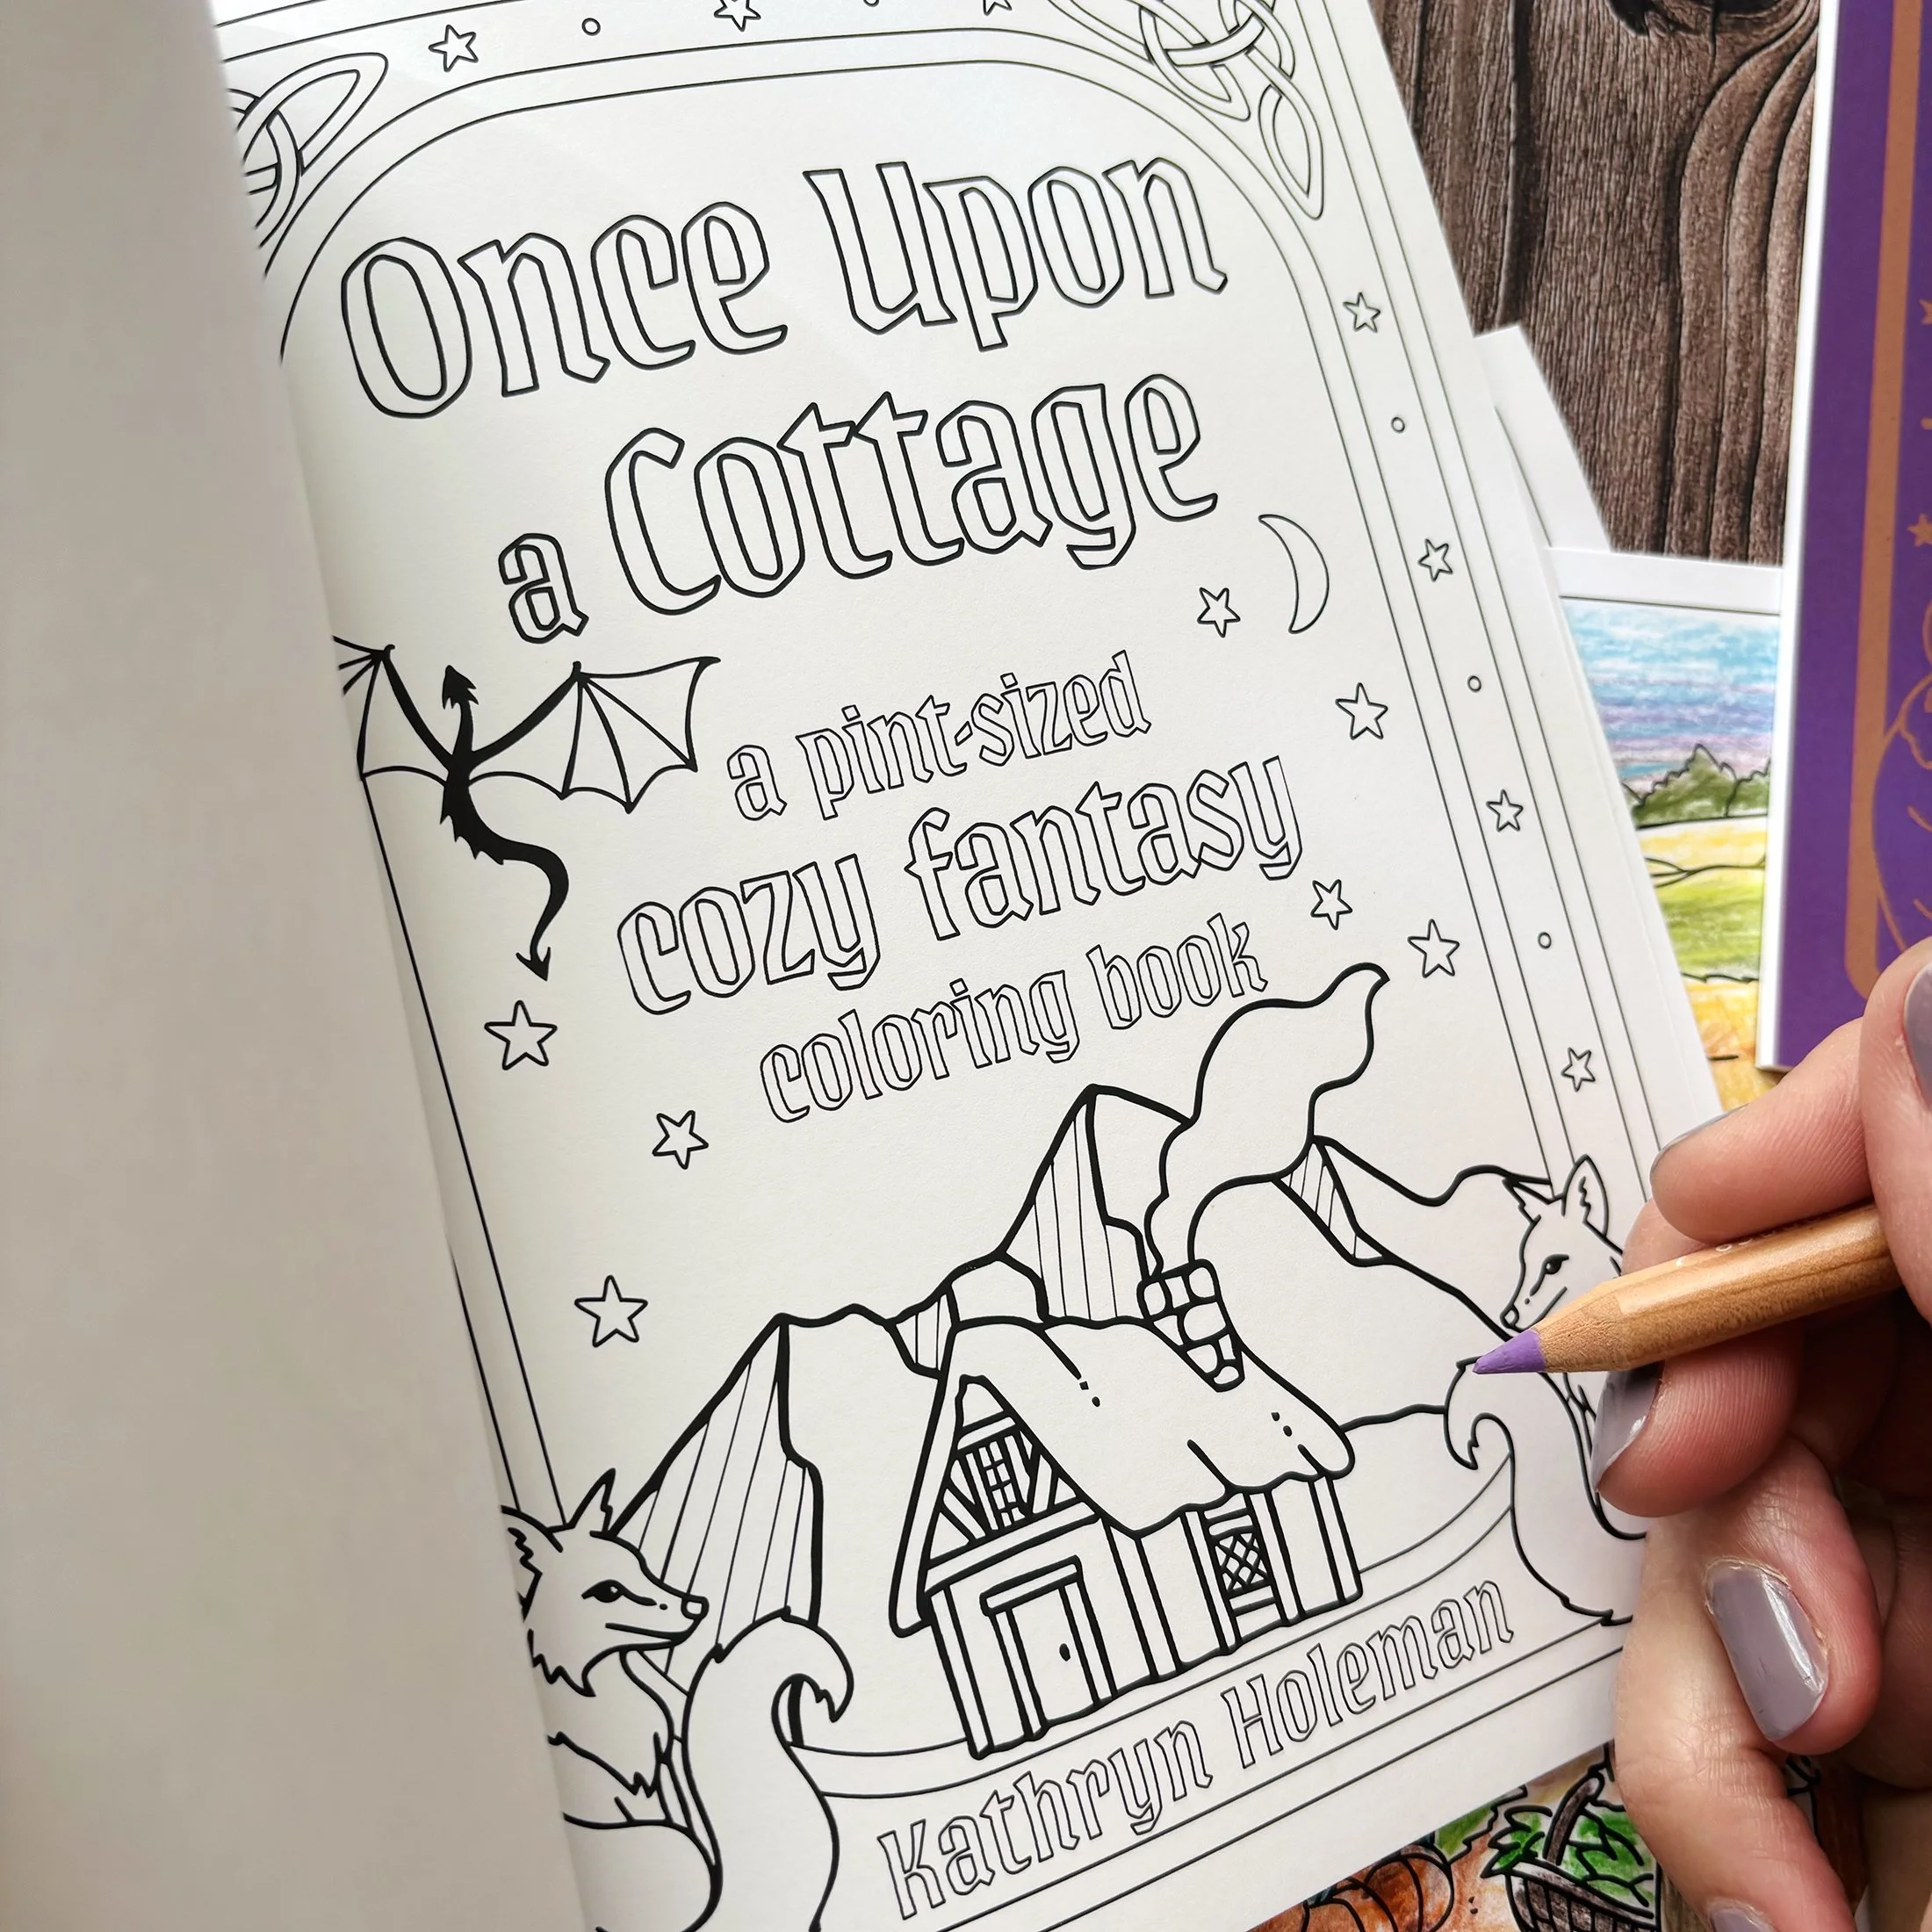 Once Upon
a Cottage
a pint-sized
cozy fantasy
coloring book
Kathryn Holeman